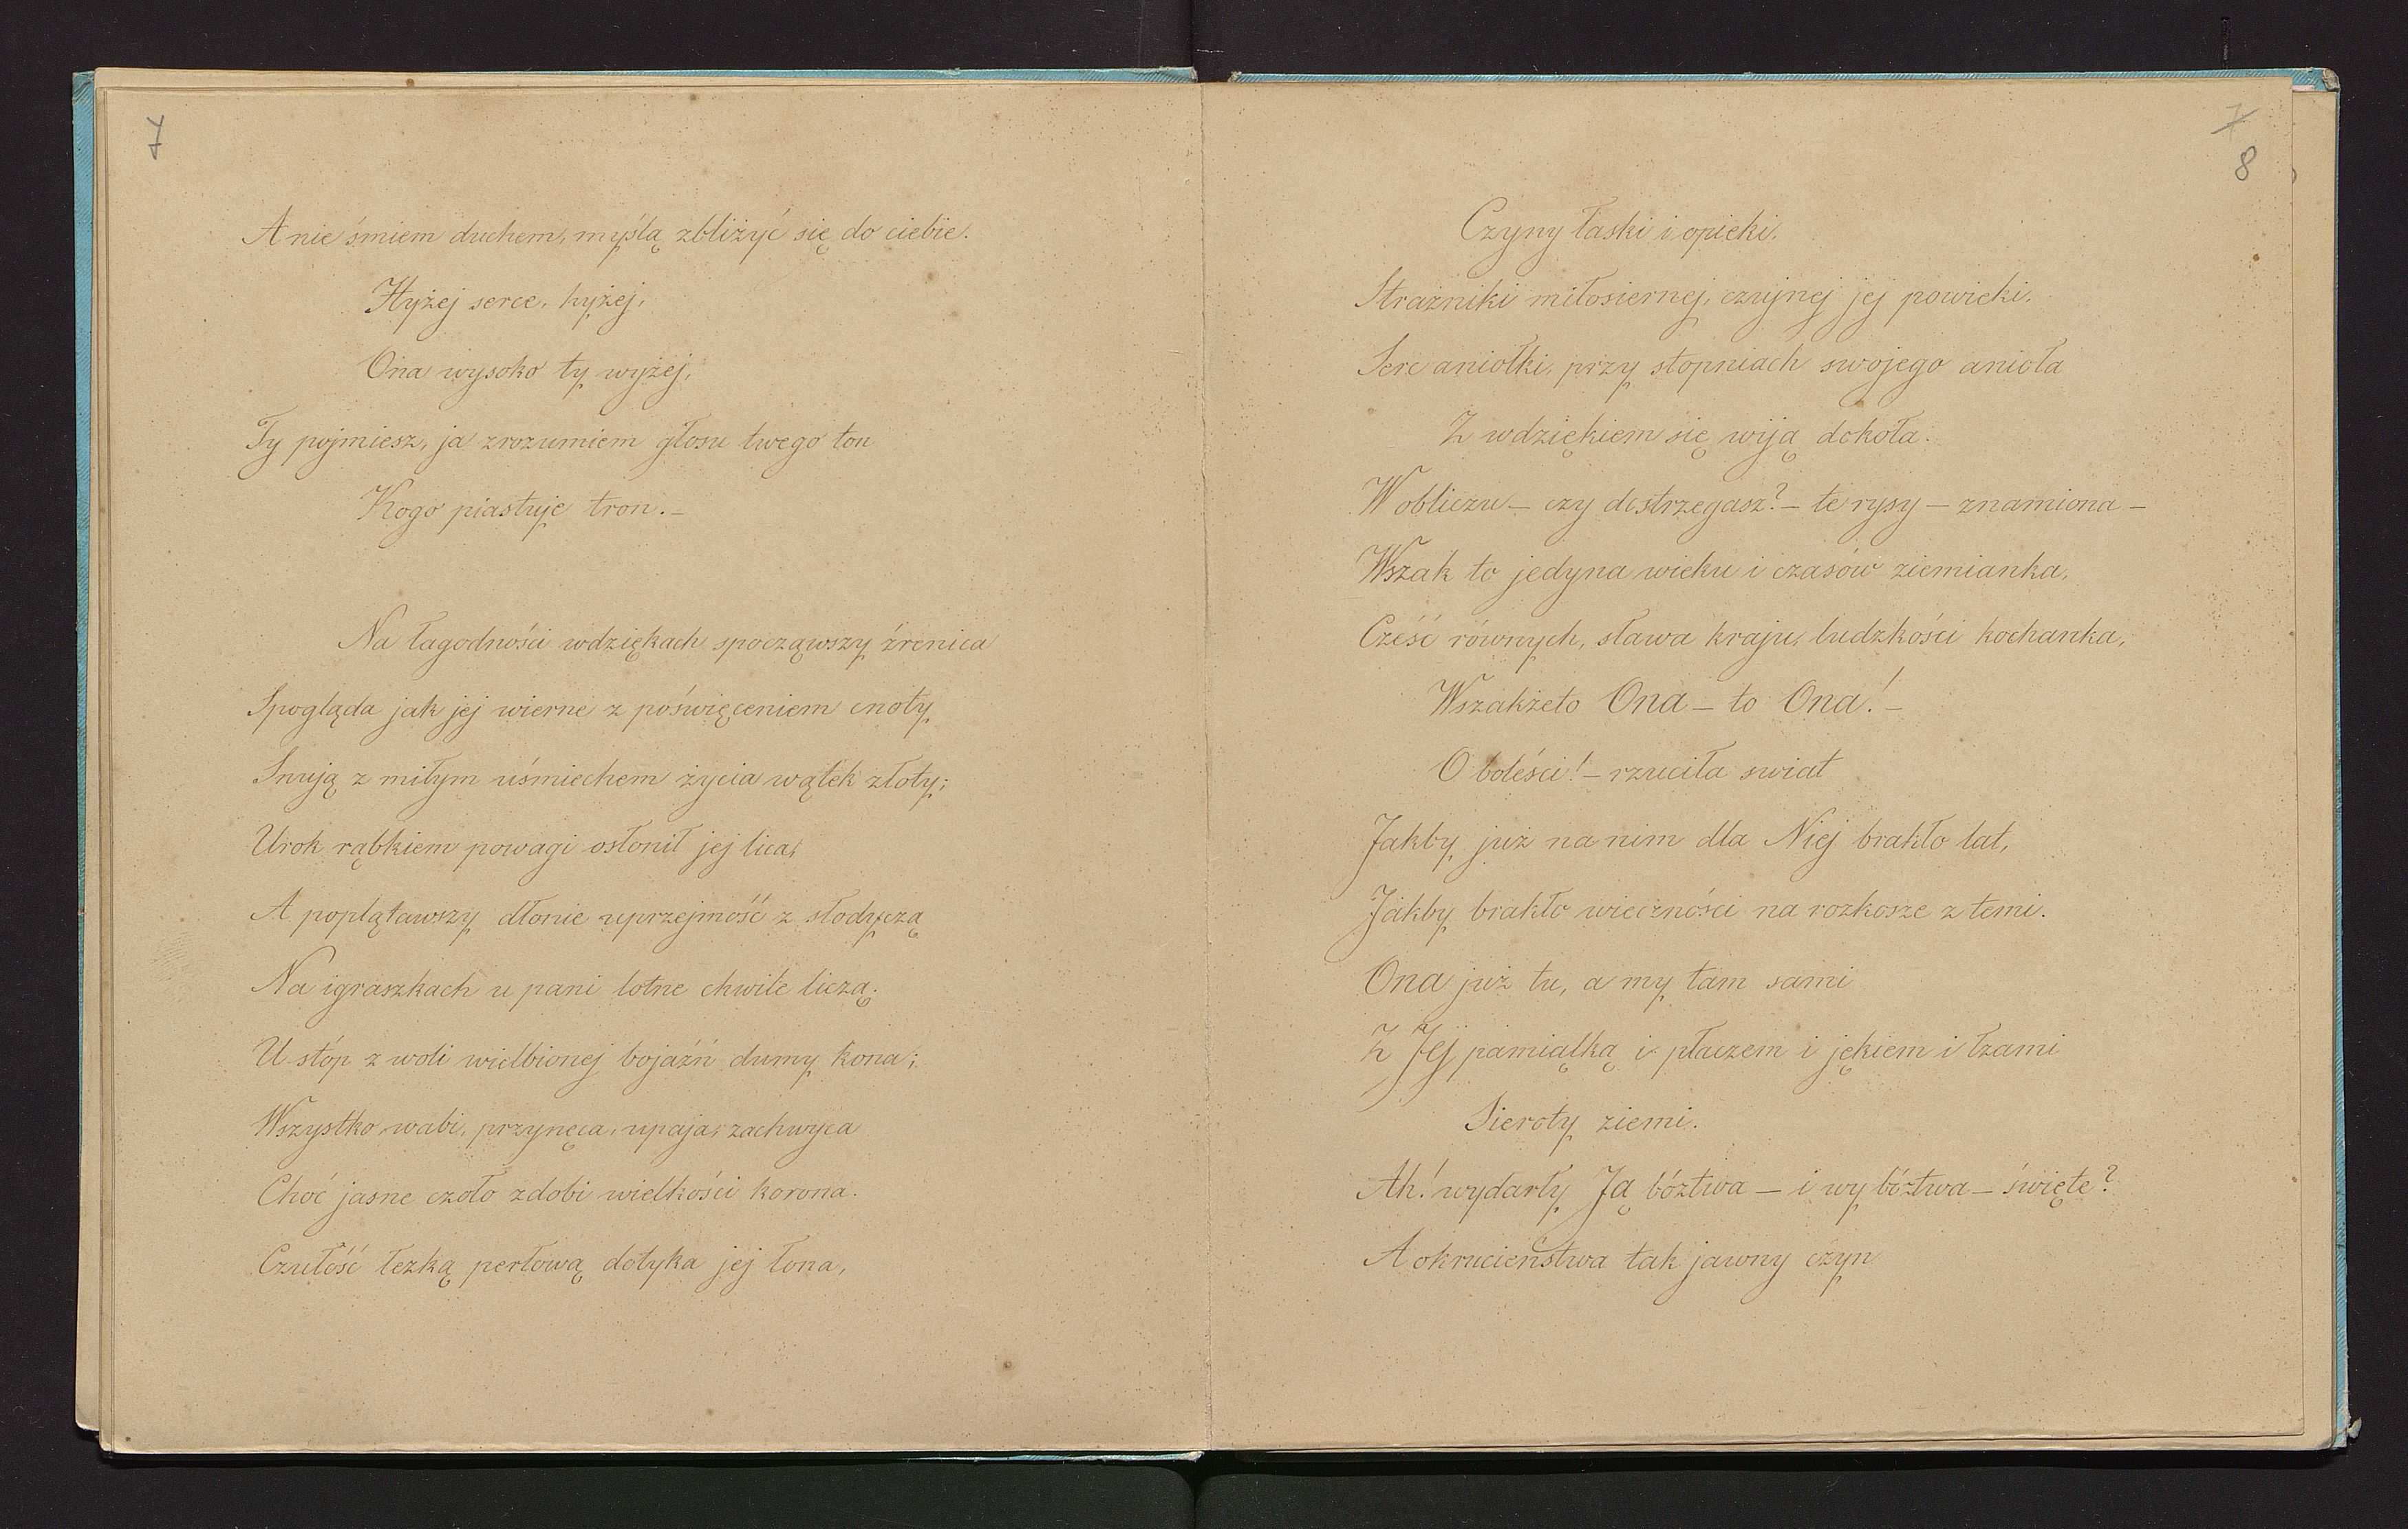 7
A nie śmiem duchem, myślą zbliżyć się do ciebie.
Hyżej serce, hyżej,
Ona wysoko ty wyżej,
Ty pojmiesz, ja zrozumiem głosu twego ton
Kogo piastuje tron. –
Na łagodności wdziękach spocząwszy źrenica
Spogląda jak jej wierne z poświęceniem cnoty
Snują z miłym uśmiechem życia wątek złoty;
Urok rąbkiem powagi osłonił jej lica,
A poplątawszy dłonie uprzejmość z słodyczą
Na igraszkach u pani lotne chwile liczą;
U stóp z woli wielbionej bojaźń dumy kona;
Wszystko wabi, przynęca, upaja, zachwyca
Choć jasne czoło zdobi wielkości korona.
Czułość łezką perłową dotyka jej łona,
7
8
Czyny łaski i opieki,
Strażniki miłosiernej, czujnej jej powieki,
Serc aniołki, przy stopniach swojego anioła
Z wdziękiem się wiją dokoła.
W obliczu – czy dostrzegasz? – te rysy – znamiona –
Wszak to jedyna wieku i czasów ziemianka,
Cześć równych, sława kraju, ludzkości kochanka,
Wszakżeto Ona – to Ona! –
O boleści! – rzuciła swiat
Jakby już na nim dla Niej brakło lat,
Jakby brakło wieczności na rozkosze z temi.
Ona już tu, a my tam sami
Z Jej pamiątką i płaczem i jękiem i łzami
Sieroty ziemi.
Ah! wydarły Ją bóztwa – i wy bóztwa – święte?
A okrucieństwa tak jawny czyn